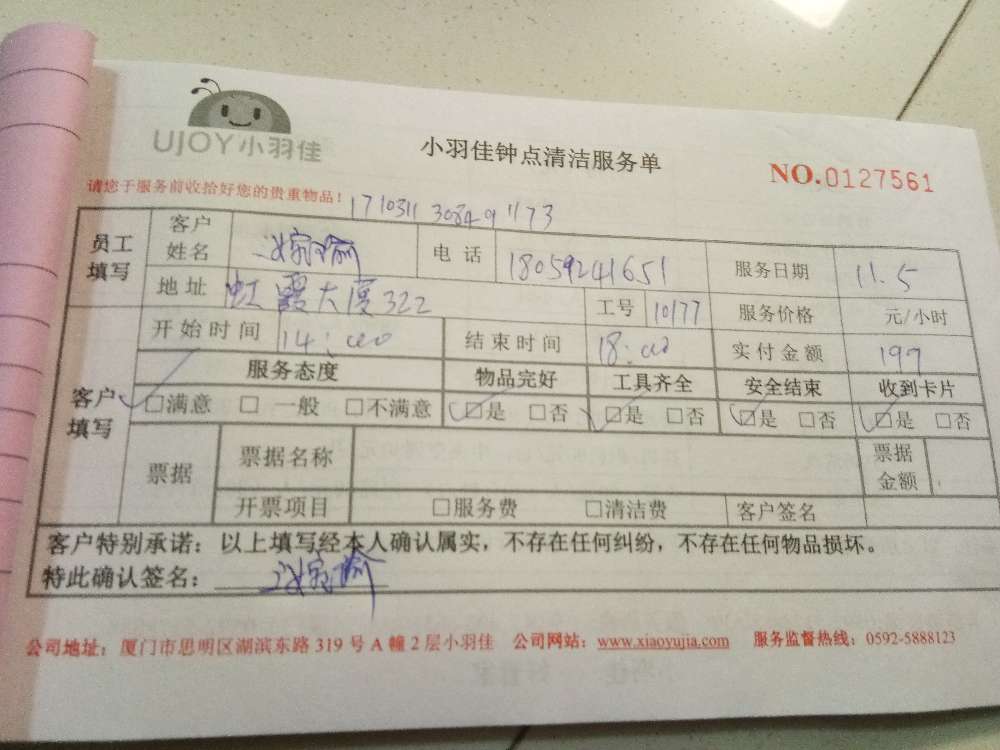 UJOY小羽佳
小羽佳钟点清洁服务单
NO.0127561
请您于服务前收拾好您的贵重物品！
员工填写 客户姓名 电话 18059241651 服务日期 11.5
地址 虹霞大厦322 工号 10177 服务价格 元/小时
客户填写 开始时间 14:00 结束时间 18:00 实付金额 197
服务态度 物品完好 工具齐全 安全结束 收到卡片
□满意 □一般 □不满意 ☑是 □否 ☑是 □否 ☑是 □否 ☑是 □否
票据 票据名称 票据金额
开票项目 □服务费 □清洁费 客户签名
客户特别承诺：以上填写经本人确认属实，不存在任何纠纷，不存在任何物品损坏。
特此确认签名：
公司地址：厦门市思明区湖滨东路319号A幢2层小羽佳 公司网站：www.xiaoyujia.com 服务监督热线：0592-5888123